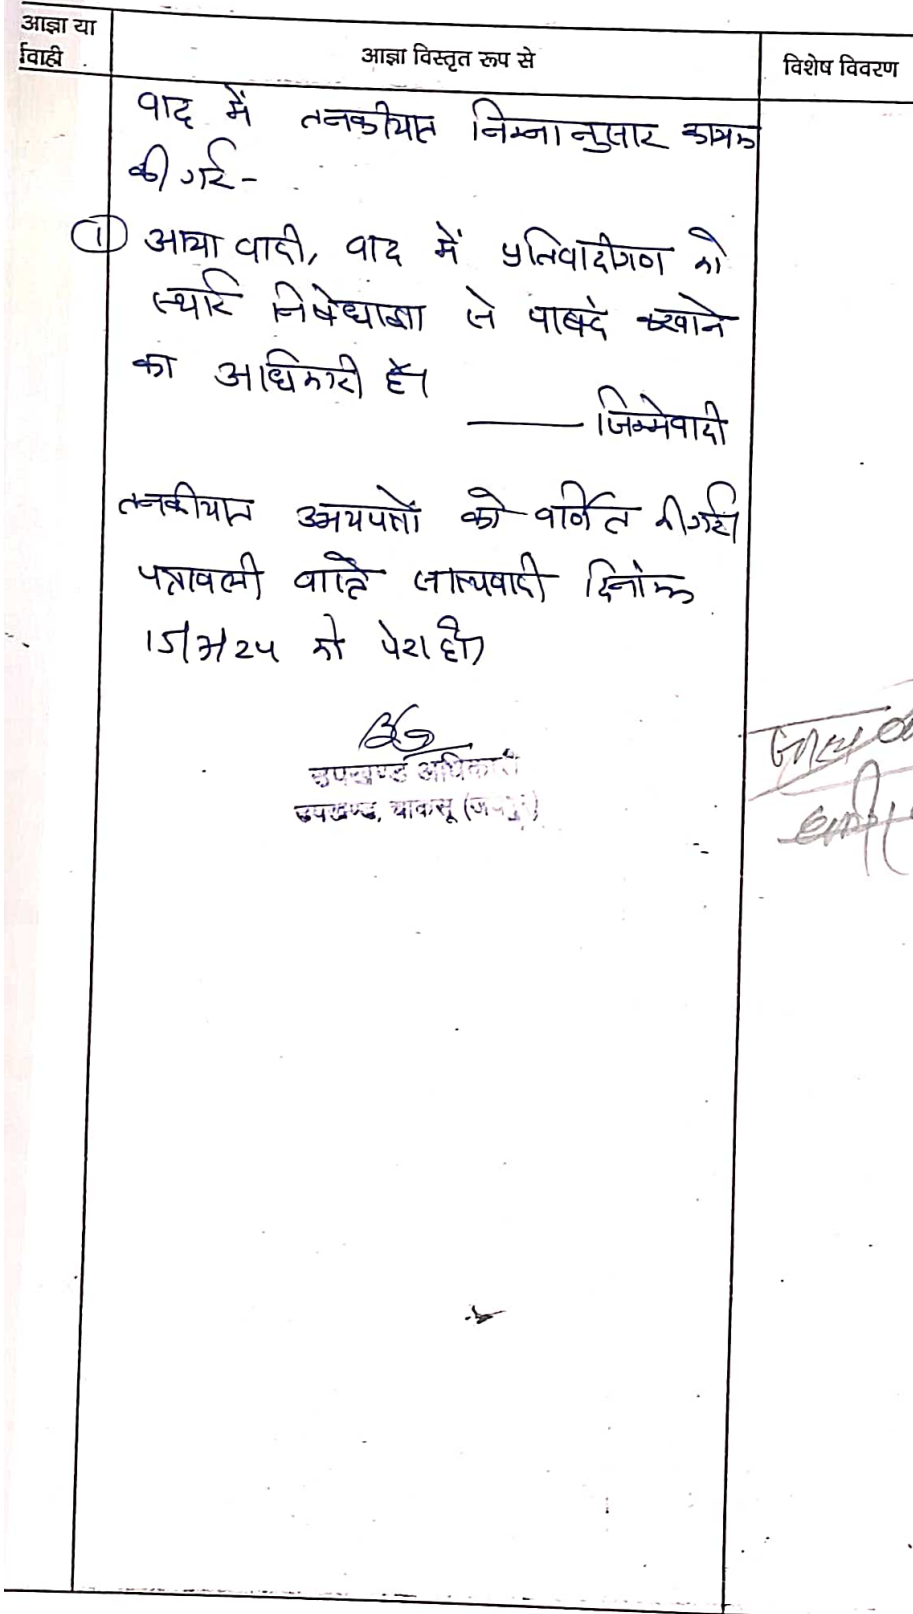 आज्ञा या
र्वाही
आज्ञा विस्तृत रूप से
विशेष विवरण
वाद में तनकीयात निम्नानुसार कायम
की गई-
① आया वादी, वाद में प्रतिवादीगण को
स्थाई निषेधाज्ञा से पाबंद करवाने
का अधिकारी है।
—— जिम्मेवादी
तनकीयात उभयपक्षों को वर्णित की गई।
पत्रावली वास्ते साक्ष्यवादी दिनांक
को पेश हो।
उपखण्ड अधिकारी
उपखण्ड, चाकसू (जयपुर)